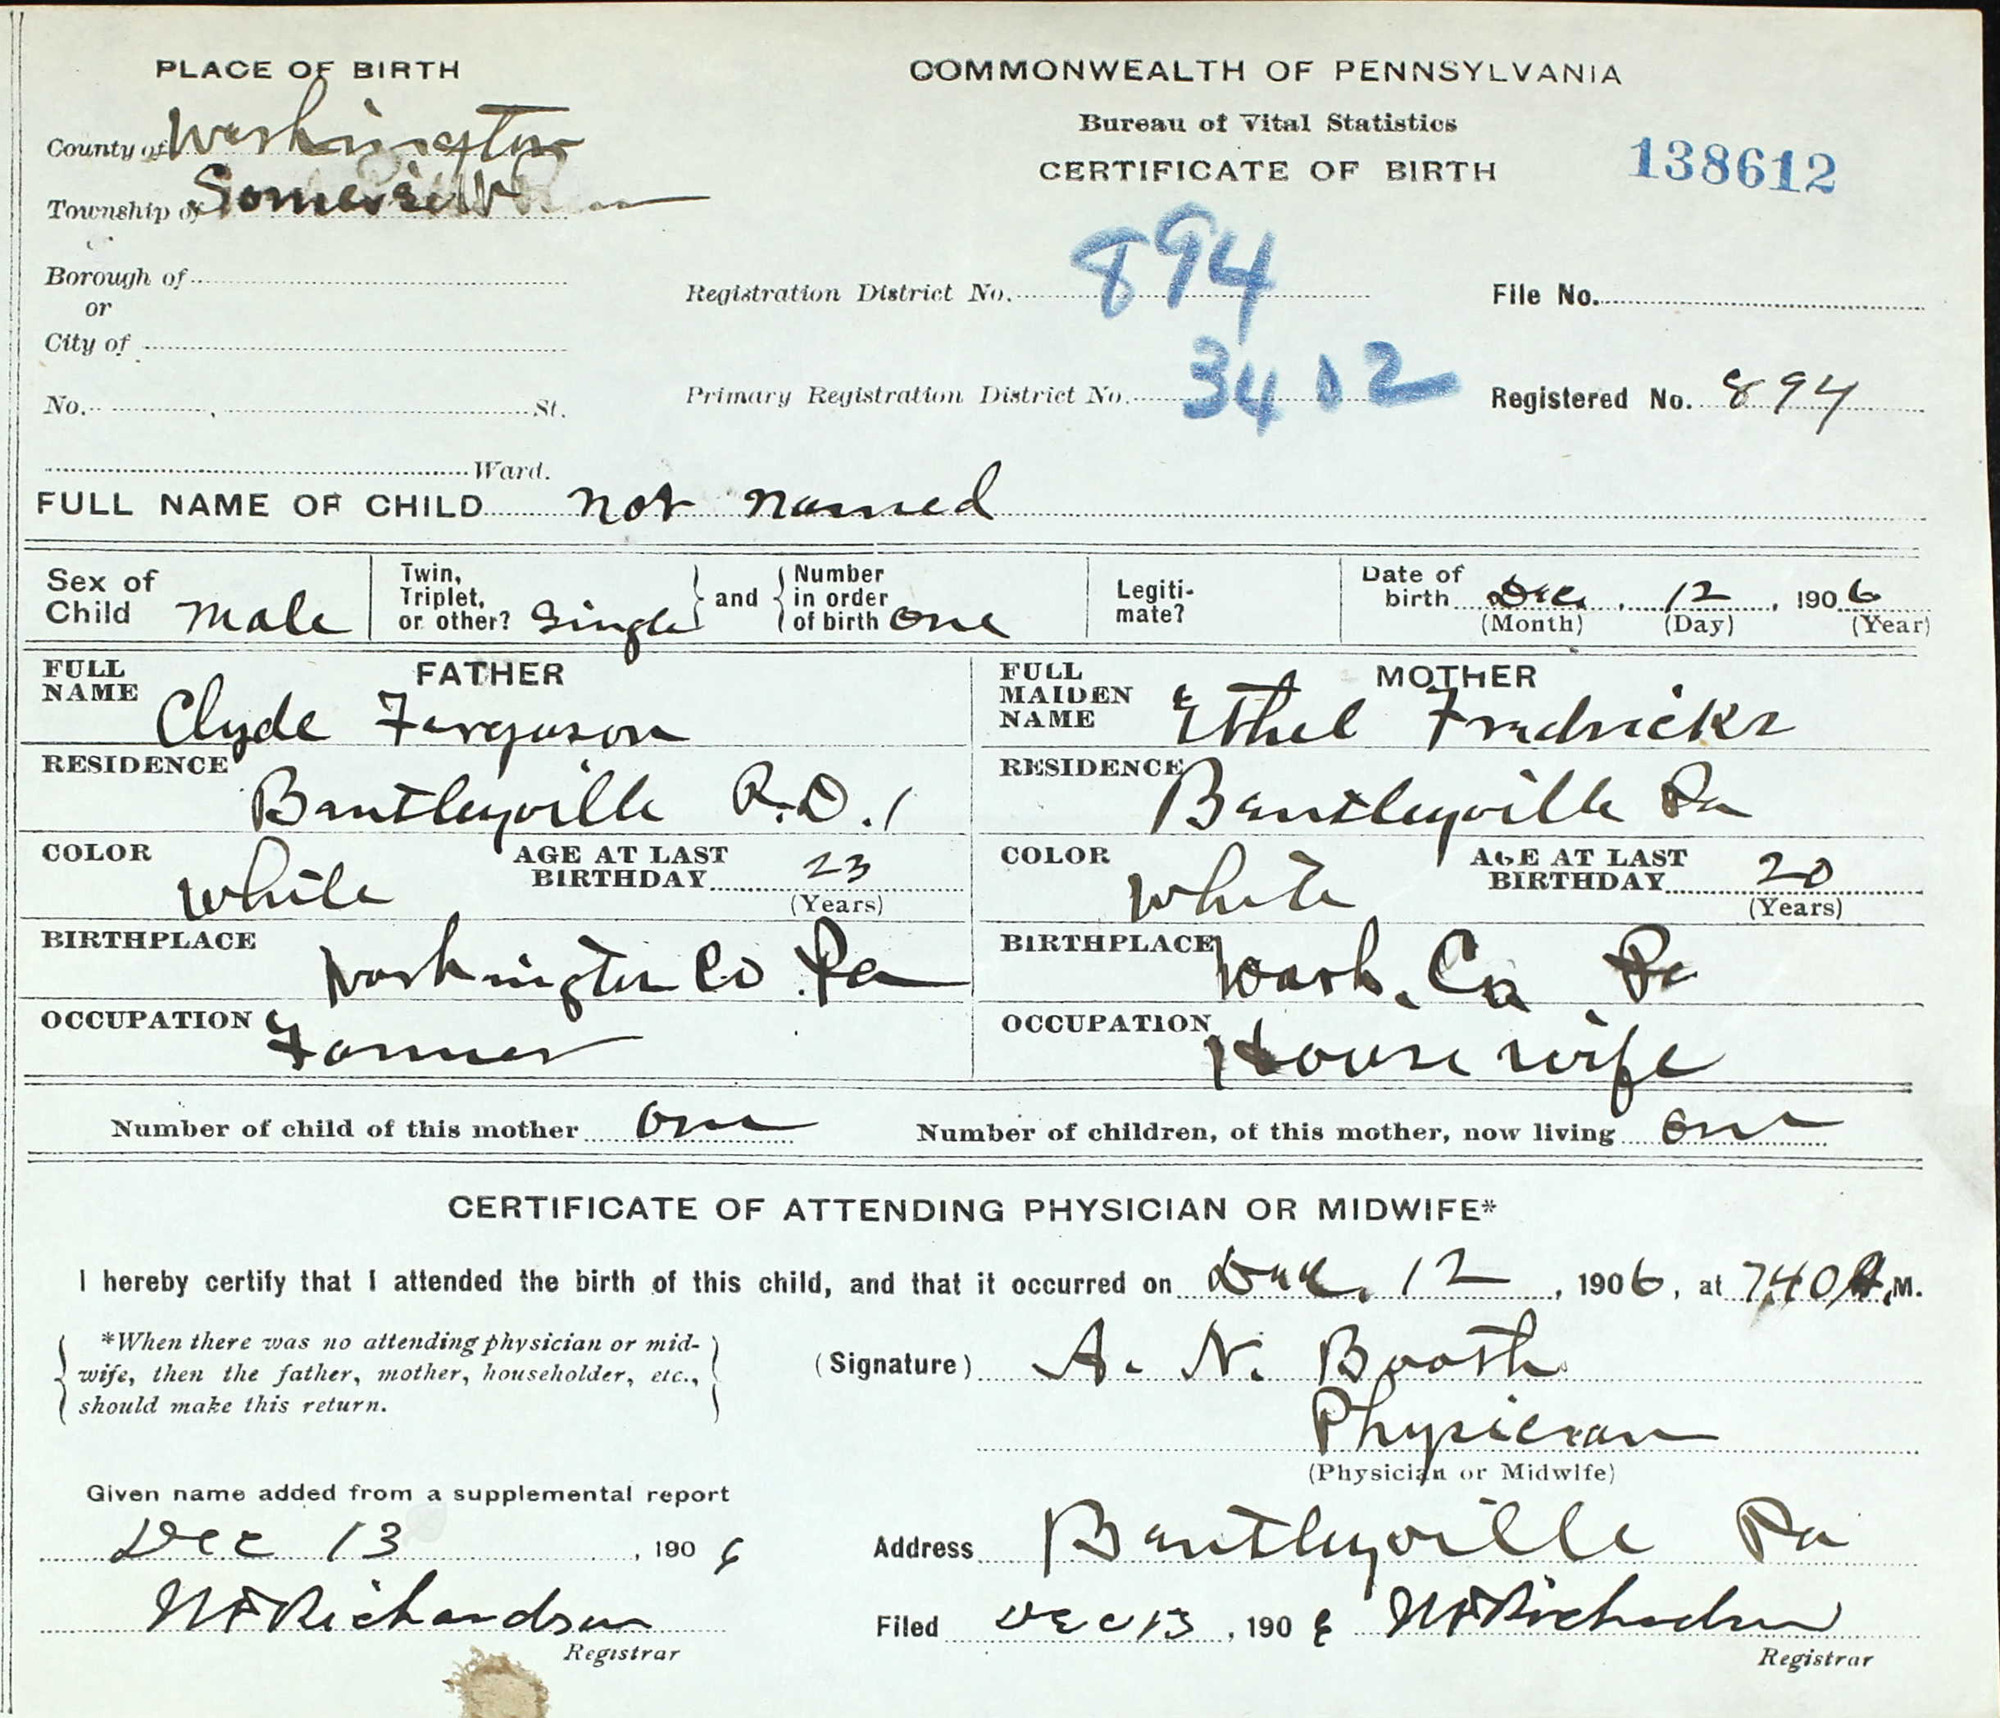 PLACE OF BIRTH
COMMONWEALTH OF PENNSYLVANIA
Bureau of Vital Statistics
CERTIFICATE OF BIRTH
138612
County of Washington
Township of Somerset
Borough of
or
City of
No. , St.
Ward.
Registration District No. 894
File No.
Primary Registration District No. 3402
Registered No. 894
FULL NAME OF CHILD not named
Sex of Child Male
Twin, Triplet, or other? Single
and
Number in order of birth one
Legiti-mate?
Date of birth Dec. , 12 , 1906
(Month) (Day) (Year)
FATHER
FULL NAME Clyde Ferguson
MOTHER
FULL MAIDEN NAME Ethel Fredricks
RESIDENCE Bentleyville R.D. 1
RESIDENCE Bentleyville Pa
COLOR White
AGE AT LAST BIRTHDAY 23
(Years)
COLOR White
AGE AT LAST BIRTHDAY 20
(Years)
BIRTHPLACE Washington Co Pa
BIRTHPLACE Wash. Co Pa
OCCUPATION Farmer
OCCUPATION House wife
Number of child of this mother one
Number of children, of this mother, now living one
CERTIFICATE OF ATTENDING PHYSICIAN OR MIDWIFE*
I hereby certify that I attended the birth of this child, and that it occurred on Dec. 12 , 1906, at 7.40 A.M.
*When there was no attending physician or mid-
wife, then the father, mother, householder, etc.,
should make this return.
(Signature) A. N. Booth
Physician
(Physician or Midwife)
Given name added from a supplemental report
Dec 13 , 1906
Richardson
Registrar
Address Bentleyville Pa
Filed Dec 13 , 1906 Richardson
Registrar